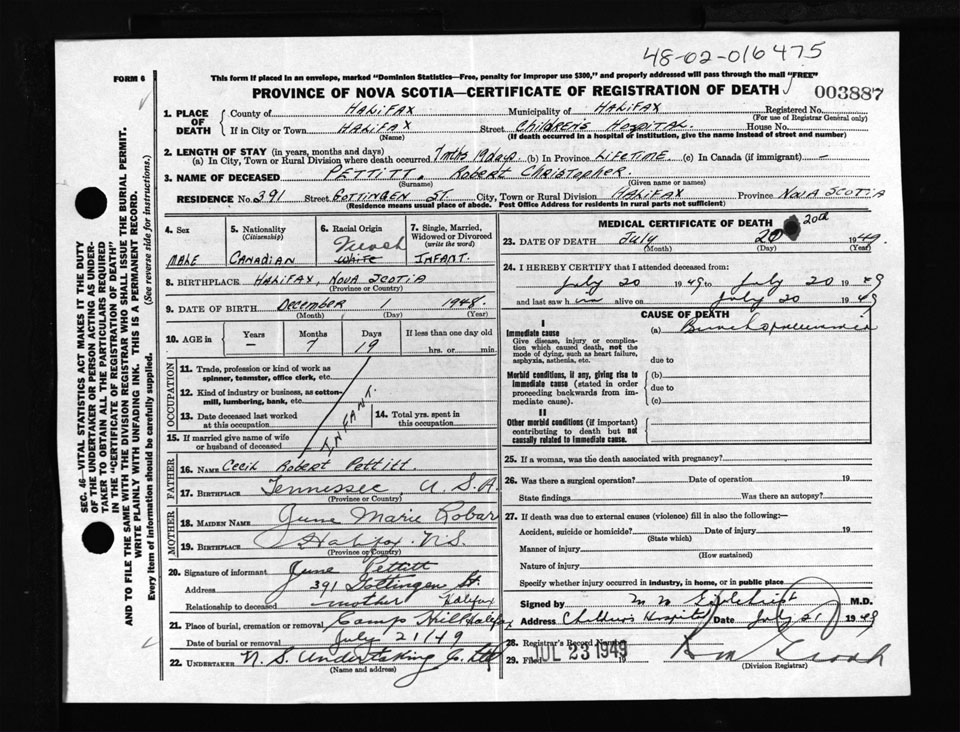 48-02-016475
FORM 6
This form if placed in an envelope, marked "Dominion Statistics—Free, penalty for improper use $300," and properly addressed will pass through the mail "FREE"
PROVINCE OF NOVA SCOTIA—CERTIFICATE OF REGISTRATION OF DEATH 003887
1. PLACE OF DEATH County of HALIFAX Municipality of HALIFAX Registered No.
(For use of Registrar General only)
If in City or Town HALIFAX Street CHILDREN'S HOSPITAL. House No.
(Name) (If death occurred in a hospital or institution, give the name instead of street and number)
2. LENGTH OF STAY (in years, months and days)
(a) In City, Town or Rural Division where death occurred 7 mths 19 days. (b) In Province LIFETIME. (c) In Canada (if immigrant) —
3. NAME OF DECEASED PETTITT. Robert Christopher.
(Surname) (Given name or names)
RESIDENCE No. 391 Street GOTTINGEN ST City, Town or Rural Division HALIFAX Province NOVA SCOTIA
(Residence means usual place of abode. Post Office Address for residents in rural parts not sufficient)
4. Sex
MALE
5. Nationality
(Citizenship)
CANADIAN
6. Racial Origin
French
White
7. Single, Married, Widowed or Divorced
(write the word)
INFANT.
8. BIRTHPLACE HALIFAX, NOVA SCOTIA
(Province or Country)
9. DATE OF BIRTH December 1 1948.
(Month) (Day) (Year)
10. AGE in Years Months Days If less than one day old
— 7 19 hrs. or min.
OCCUPATION
11. Trade, profession or kind of work as spinner, teamster, office clerk, etc.
12. Kind of industry or business, as cotton-mill, lumbering, bank, etc.
13. Date deceased last worked at this occupation
14. Total yrs. spent in this occupation
INFANT.
15. If married give name of wife or husband of deceased
FATHER
16. NAME Cecil Robert Pettitt.
17. BIRTHPLACE Tennessee U.S.A
(Province or Country)
MOTHER
18. MAIDEN NAME June Marie Robar
19. BIRTHPLACE Halifax N.S.
(Province or Country)
20. Signature of informant June Pettitt
Address 391 Gottingen St. Halifax
Relationship to deceased mother
21. Place of burial, cremation or removal Camp Hill Halifax
Date of burial or removal July 21/49
22. UNDERTAKER N. S. Undertaking Co. Ltd
(Name and address)
MEDICAL CERTIFICATE OF DEATH
20th
23. DATE OF DEATH July 20 1949.
(Month) (Day)
24. I HEREBY CERTIFY that I attended deceased from:
July 20 1949 to July 20 1949
and last saw him alive on July 20 1949
CAUSE OF DEATH
I
Immediate cause (a) Bronchopneumonia
Give disease, injury or complication which caused death, not the mode of dying, such as heart failure, asphyxia, asthenia, etc. due to
Morbid conditions, if any, giving rise to immediate cause (stated in order proceeding backwards from immediate cause). (b)
due to
(c)
II
Other morbid conditions (if important) contributing to death but not causally related to immediate cause.
25. If a woman, was the death associated with pregnancy?
26. Was there a surgical operation? Date of operation 19
State findings Was there an autopsy?
27. If death was due to external causes (violence) fill in also the following:—
Accident, suicide or homicide? Date of injury 19
(State which)
Manner of injury
(How sustained)
Nature of injury
Specify whether injury occurred in industry, in home, or in public place
Signed by M.D.
Address Children's Hospital Date July 21 1949
28. Registrar's Record Number
29. Filed JUL 23 1949
(Division Registrar)
SEC. 46—VITAL STATISTICS ACT MAKES IT THE DUTY
OF THE UNDERTAKER OR PERSON ACTING AS UNDER-
TAKER TO OBTAIN ALL THE PARTICULARS REQUIRED
IN THE "CERTIFICATE OF REGISTRATION OF DEATH"
AND TO FILE THE SAME WITH THE DIVISION REGISTRAR WHO SHALL ISSUE THE BURIAL PERMIT.
WRITE PLAINLY WITH UNFADING INK. THIS IS A PERMANENT RECORD.
Every item of information should be carefully supplied. (See reverse side for instructions.)